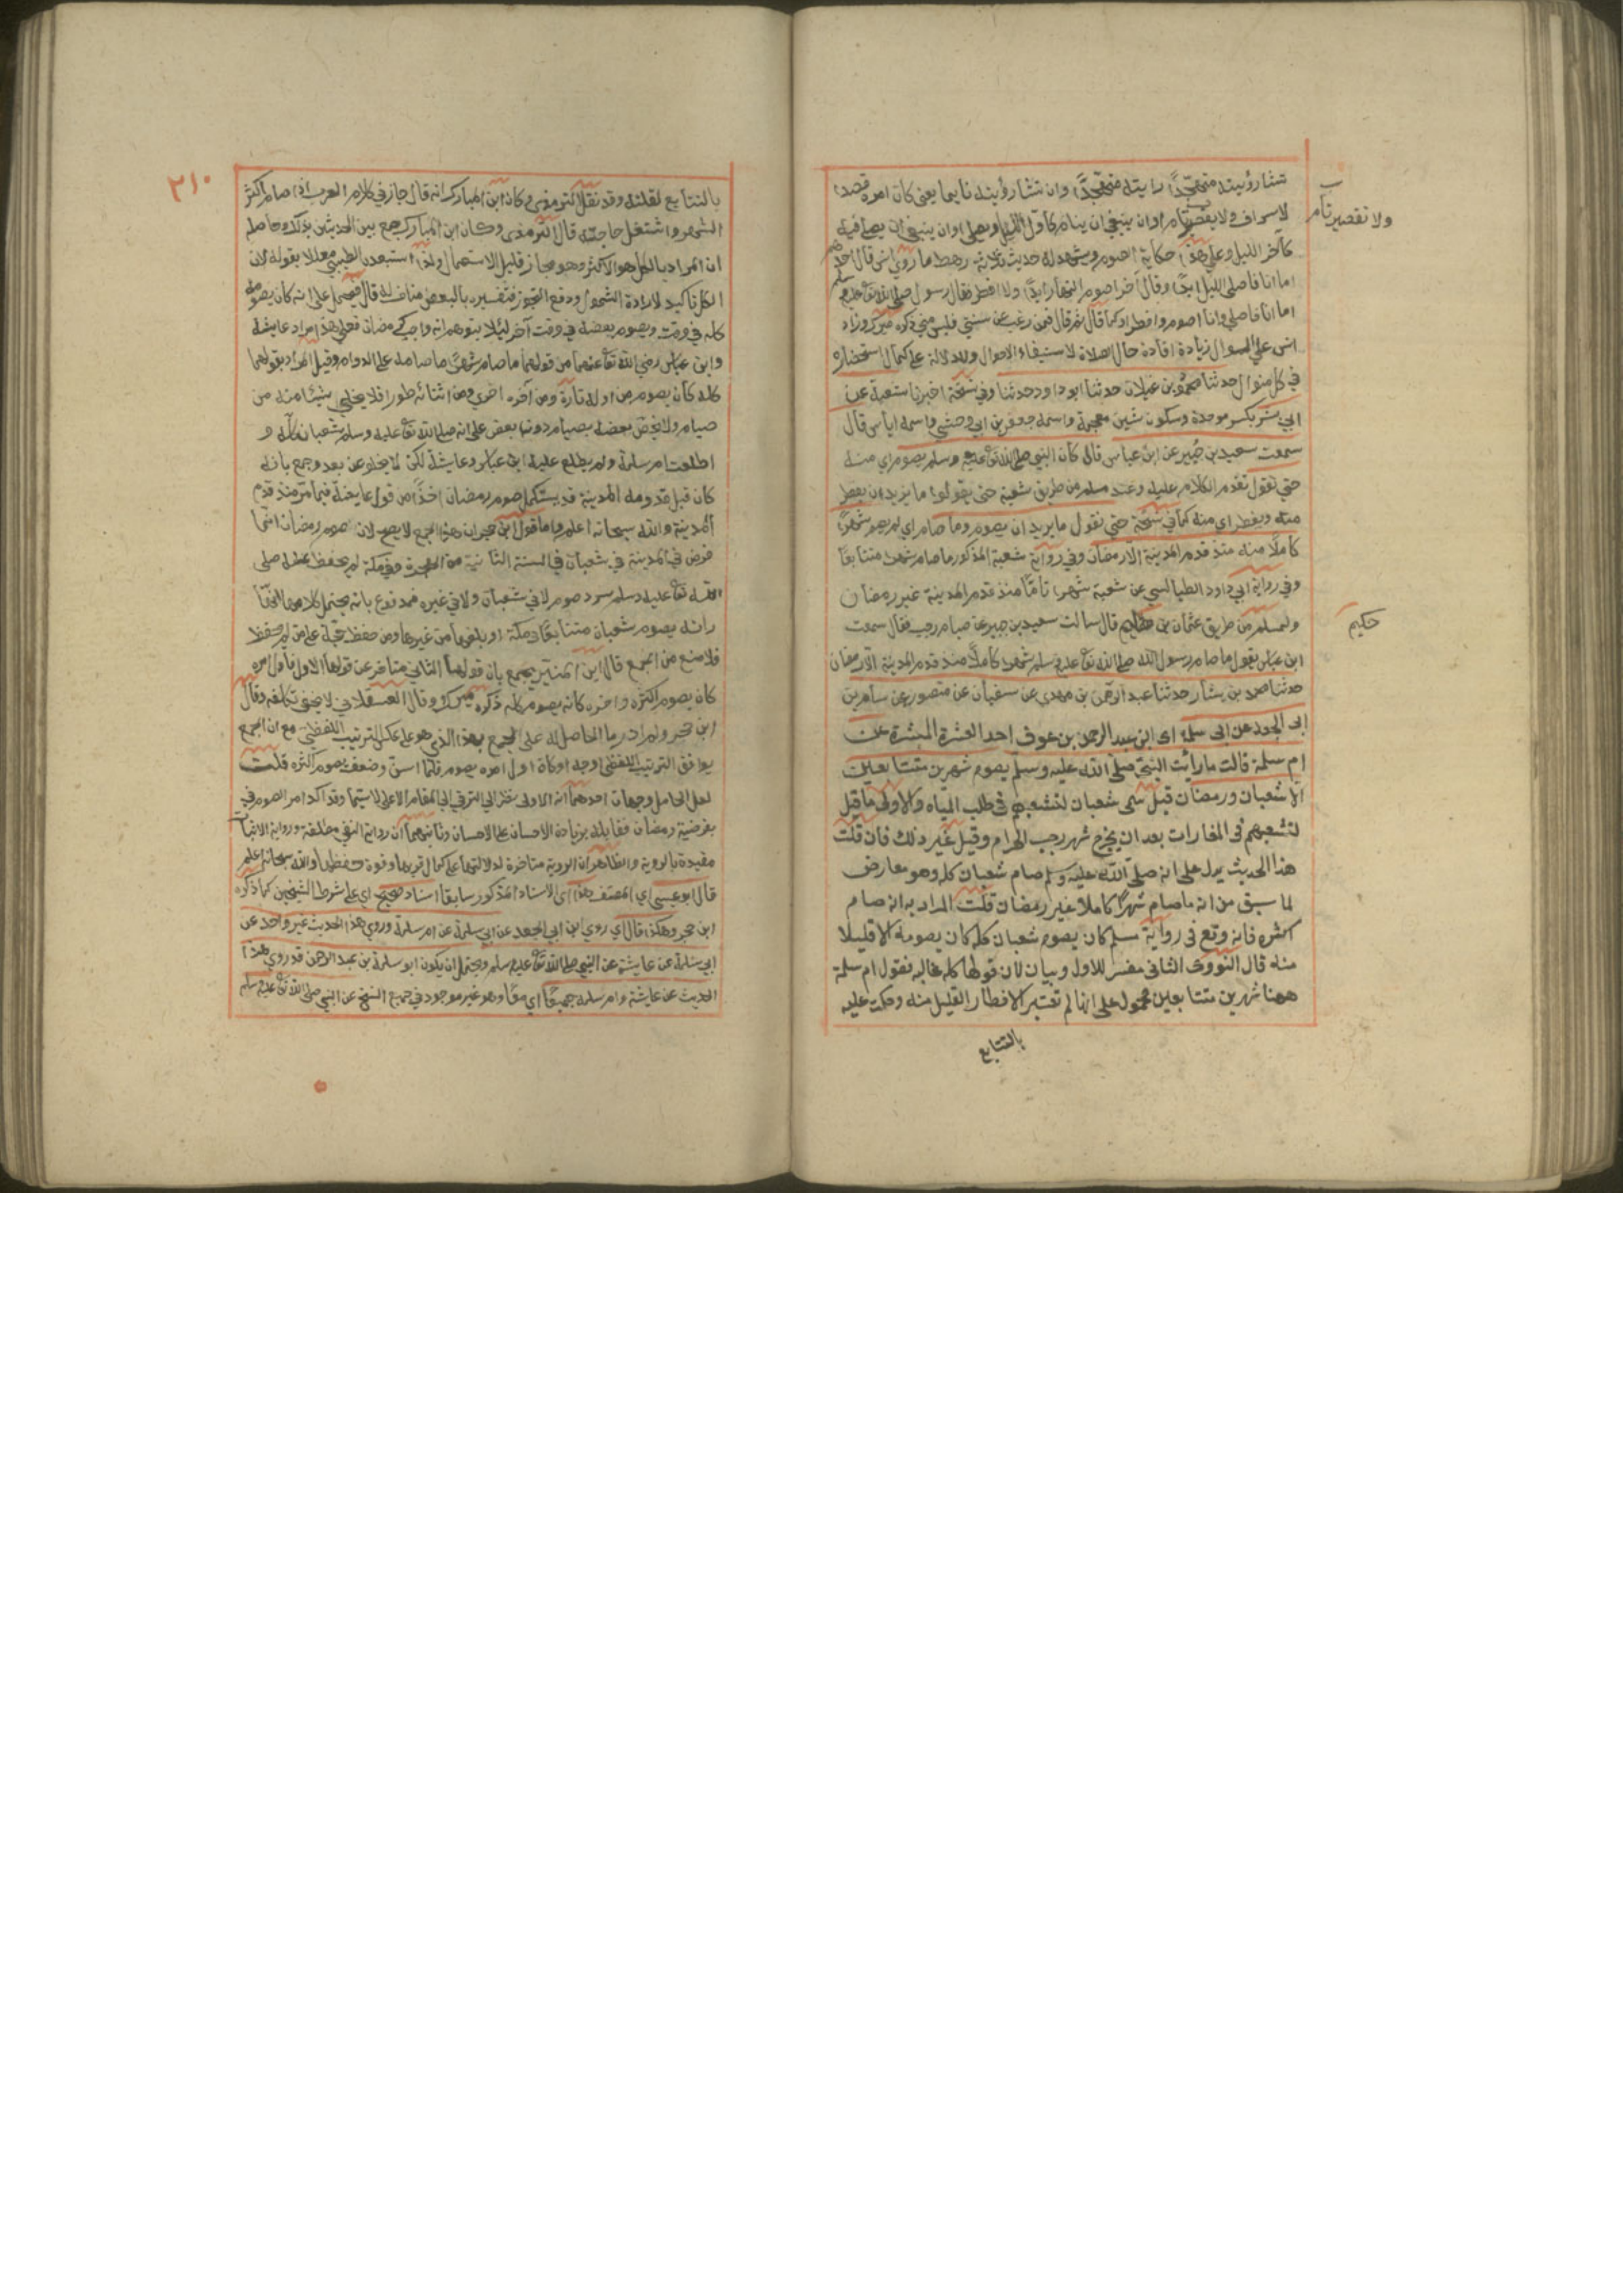 تشاء رؤيته متهجدا رايته متهجدا وان تشاء رؤيته نايما يعني كان امره قصدا
ولا تقصير نام
لا سراف ولا تقصير نام اوان ينبغي ان ينام كاول الليل ويصلي اوان ينبغي ان يصلي فيه
كآخر الليل وعلي هذا حكاية الصوم ويشهد له حديث ثلاثة رهط ما روي انس قال احدهم
اما انا فاصلي الليل ابدا وقال آخر اصوم النهار ابدا ولا افطر فقال رسول الله صلي الله تع عليه وسلم
اما انا فاصلي وانا اصوم وافطر او كما قال ثم قال فمن رغب عن سنتي فليس مني ذكره ميرك وزاد
انس علي السوال زيادة افادة حال الصلاة لاستيفاء الاحوال وللدلالة علي كمال استحضاره
في كل منوال حدثنا محمود بن غيلان حدثنا ابو داود حدثنا وفي نسخة اخبرنا شعبة عن
ابي بشر بكسر موحدة وسكون شين معجمة واسمه جعفر بن ابي وحشي واسمه اياس قال
سمعت سعيد بن جبير عن ابن عباس قال كان النبي صلي الله تع عليه وسلم يصوم اي منه
حتي نقول تقدم الكلام عليه وعند مسلم من طريق شعبة حتي يقولوا ما يريد ان يفطر
منه ويفطر اي منه كما في نسخة حتي نقول ما يريد ان يصوم وما صام اي لم يصم شهرا
كاملا منه منذ قدم المدينة الا رمضان وفي رواية شعبة المذكور ما صام شهرا متتابعا
وفي رواية ابي داود الطيالسي عن شعبة شهرا تاما منذ قدم المدينة غير رمضان
حكيم
ولمسلم من طريق عثمان بن حكيم قال سالت سعيد بن جبير عن صيام رجب فقال سمعت
ابن عباس يقول ما صام رسول الله صلي الله تع عليه وسلم شهرا كاملا منذ قدم المدينة الا رمضان
حدثنا محمد بن بشار حدثنا عبد الرحمن بن مهدي عن سفيان عن منصور عن سالم بن
ابى الجعد عن ابى سلمة اى ابن عبد الرحمن بن عوف احد العشرة المبشرة عن
ام سلمة قالت ما رأيت النبي صلى الله عليه وسلم يصوم شهرين متتابعين
الا شعبان ورمضان قيل سمى شعبان لتشعبهم فى طلب المياه والاولى ما قيل
لتشعبهم فى الغارات بعد ان يخرج شهر رجب الحرام وقيل غير ذلك فان قلت
هذا الحديث يدل على انه صلى الله عليه وسلم صام شعبان كله وهو معارض
لما سبق من انه ما صام شهرا كاملا غير رمضان قلت المراد به انه صام
اكثره فانه وقع فى رواية مسلم كان يصوم شعبان كله كان يصومه الا قليلا
منه قال النووى الثانى مفسر للاول وبيان لان قولها كله غالبه فقول ام سلمة
ههنا شهرين متتابعين محمول على انها لم تعتبر الافطار القليل منه وحكمت عليه
بالتتابع
٢١٠
بالتتابع لقلته وقد نقل الترمذي وكان ابن المبارك انه قال جاز في كلام العرب اذا صام اكثر
الشهر واشتغل حاجته قال الترمذي وكان ابن المبارك جمع بين الحديثين بذلك وحاصله
ان المراد بالكل هو الاكثر وهو مجاز قليل الاستعمال ولذا استبعده الطيبي معللا بقوله لان
الكل تاكيد لارادة الشمول ودفع التجوز فتفسيره بالبعض مناف له قال فيحمل علي انه كان يصومه
كله في وقت ويصوم بعضه في وقت آخر لئلا يتوهم انه واجب كرمضان فعلي هذا مراد عايشة
وابن عباس رضي الله تع عنهما من قولهما ما صام شهرا ما صامه علي الدوام وقيل المراد بقولهما
كله كان يصوم من اوله تارة ومن آخره اخري ومن اثنائه طورا فلا يخلي شيئا منه من
صيام ولا يخص بعضه بصيام دون بعض علي انه صلي الله تع عليه وسلم شعبان كله و
اطلعت ام سلمة ولم يطلع عليه ابن عباس وعايشة لكن لا يخلو عن بعد وجمع بانه
كان قبل قدومه المدينة قد يستكمل صوم رمضان اخذا من قول عايشة فيما مر منذ قدم
المدينة والله سبحانه اعلم واما قول ابن حجر ان هذا الجمع لا يصح لان صوم رمضان انما
فرض في المدينة في شعبان في السنة الثانية من الهجرة وفي مكة لم يحفظ عنه صلي
الله تع عليه وسلم سرد صوم لا في شعبان ولا في غيره فمدفوع بانه يحتمل
رانه يصوم شعبان متتابعا بمكة او بلغهما من غيرها ومن حفظ حجة علي من لم يحفظ
فلا منع من الجمع قال ابن المنير يجمع بان قولها الثاني متاخر عن قولها الاول فاول امره
كان يصوم اكثره واخره كانه يصوم كله ذكره ميرك وقال العسقلاني لا يخفي تكلفه وقال
ابن حجر ولم ادر ما الحاصل له علي الجمع بهذا الذي هو علي عكس الترتيب اللفظي مع ان الجمع
يوافق الترتيب اللفظي اوجه اوكاد اول امره يصوم كله فلما اسن وضعف يصوم اكثره قلت
لعل الحامل وجهان احدهما انه الاولى نظرا الي الترقي الي المقام الاعلي لا سيما وقد اكد امر الصوم في
بفرضية رمضان فقابله بزيادة الاحسان علي الاحسان وثانيهما ان رواية النفي مطلقة ورواية الاثبات
مقيدة بالروية والظاهر ان الروية متاخرة لدلالتها علي كمال قربها وقوة حفظها والله سبحانه اعلم
قال ابو عيسي اي المصنف هذا اي الاسناد المذكور سابقا اسناد صحيح اي علي شرط الشيخين كما ذكره
ابن حجر وهكذا قال اي روي ابن ابي الجعد عن ابي سلمة عن ام سلمة وروي هذا الحديث غير واحد عن
ابي سلمة عن عايشة عن النبي صلي الله تع عليه وسلم ويحتمل ان يكون ابو سلمة بن عبد الرحمن قد روي هذا
الحديث عن عايشة وام سلمة جميعا اي معا وهو غير موجود في جميع النسخ عن النبي صلي الله تع عليه وسلم